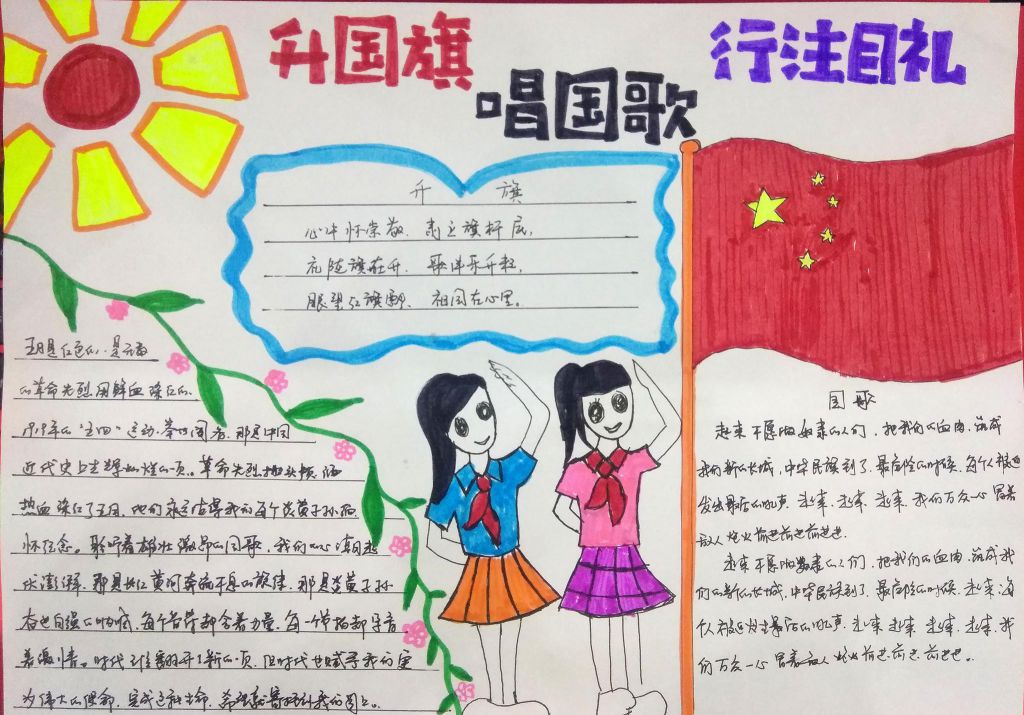 升国旗
唱国歌
行注目礼
升 旗
心中怀崇敬，肃立旗杆底，
礼随旗在升，歌洋乐升起，
眼望红旗飘，祖国在心里。
五月是红色的，是无数
的革命先烈用鲜血染红的。
1919年的“五四”运动，举世闻名，那是中国
近代史上光辉的一页。革命先烈抛头颅，洒
热血染红了五月，他们永远值得我们每个炎黄子孙缅
怀纪念。聆听着雄壮激昂的国歌，我们的心潮起
伏澎湃，那是长江黄河奔流不息的旋律，那是炎黄子孙
奋也自强的呐喊，每个音符都含着力量，每一个节拍都孕育
着激情。时代 翻开了新的一页，但时代也赋予我们更
为伟大的使命，完成这种生命，希望就寄托到我们的身上。
国歌
起来不愿做奴隶的人们，把我们的血肉，筑成
我们新的长城，中华民族到了，最危险的时候，每个人被迫
发出最后的吼声，起来，起来，起来，我们万众一心冒着
敌人炮火前进前进前进进。
起来不愿做奴隶的人们，把我们的血肉，筑成我
们的新的长城，中华民族到了，最危险的时候，起来，每
个人被迫发出最后的吼声，起来起来，起来，起来，我
们万众一心冒着敌人炮火前进，前进，前进进。